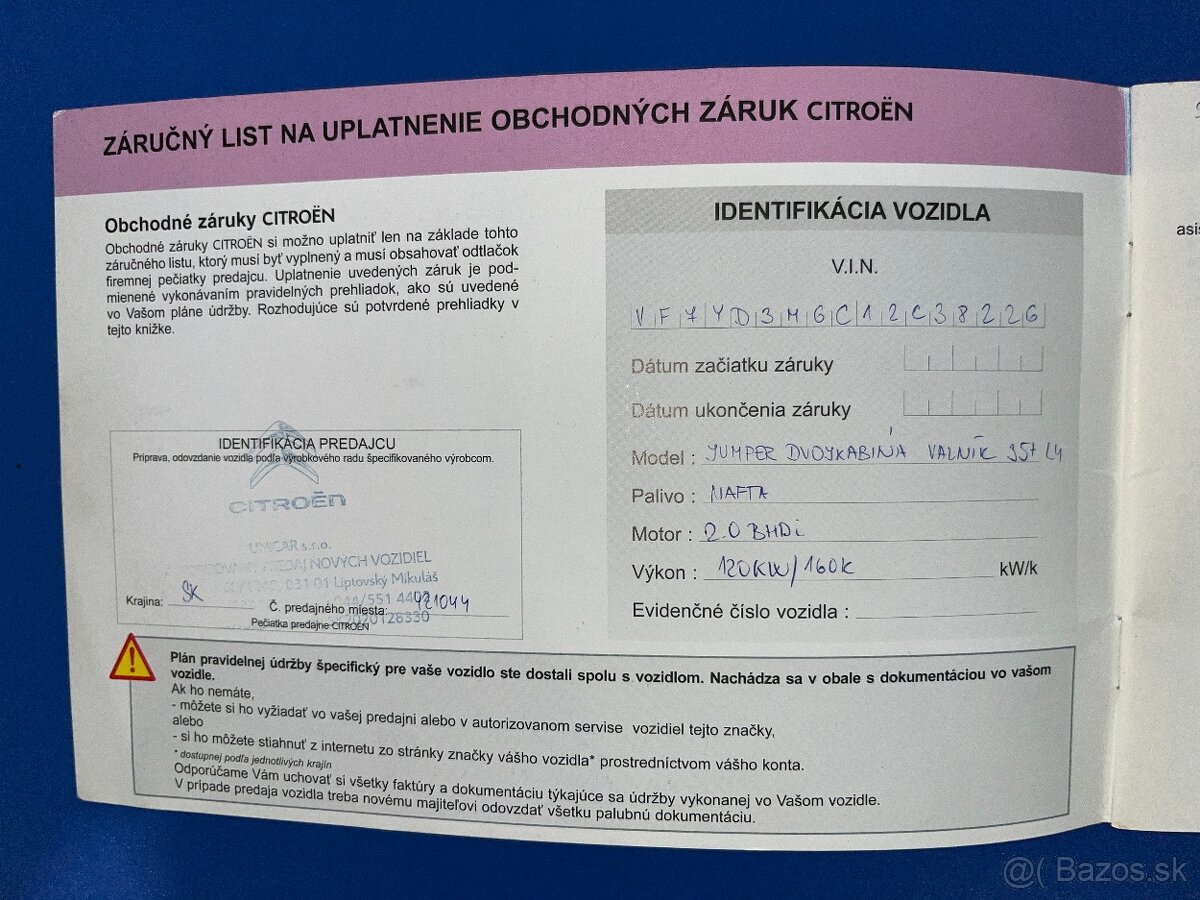 ZÁRUČNÝ LIST NA UPLATNENIE OBCHODNÝCH ZÁRUK CITROËN
Obchodné záruky CITROËN
Obchodné záruky CITROËN si možno uplatniť len na základe tohto
záručného listu, ktorý musí byť vyplnený a musí obsahovať odtlačok
firemnej pečiatky predajcu. Uplatnenie uvedených záruk je pod-
mienené vykonávaním pravidelných prehliadok, ako sú uvedené
vo Vašom pláne údržby. Rozhodujúce sú potvrdené prehliadky v
tejto knižke.
IDENTIFIKÁCIA PREDAJCU
Priprava, odovzdanie vozidla podľa výrobkového radu špecifikovaného výrobcom.
CITROËN
UNICAR s.r.o.
PREDAJ NOVÝCH VOZIDIEL
031 01 Liptovský Mikuláš
/551 4402
Krajina: SK Č. predajného miesta: 421044
2020128330
Pečiatka predajne CITROËN
IDENTIFIKÁCIA VOZIDLA
V.I.N.
VF7YD3MGC12C38226
Dátum začiatku záruky
Dátum ukončenia záruky
Model : JUMPER DVOJKABINA VALNÍK 35+ L4
Palivo : NAFTA
Motor : 2.0 BHDi
Výkon : 120KW/160K kW/k
Evidenčné číslo vozidla :
Plán pravidelnej údržby špecifický pre vaše vozidlo ste dostali spolu s vozidlom. Nachádza sa v obale s dokumentáciou vo vašom
vozidle.
Ak ho nemáte,
- môžete si ho vyžiadať vo vašej predajni alebo v autorizovanom servise vozidiel tejto značky,
alebo
- si ho môžete stiahnuť z internetu zo stránky značky vášho vozidla* prostredníctvom vášho konta.
* dostupnej podľa jednotlivých krajín
Odporúčame Vám uchovať si všetky faktúry a dokumentáciu týkajúce sa údržby vykonanej vo Vašom vozidle.
V prípade predaja vozidla treba novému majiteľovi odovzdať všetku palubnú dokumentáciu.
asis
@( Bazos.sk